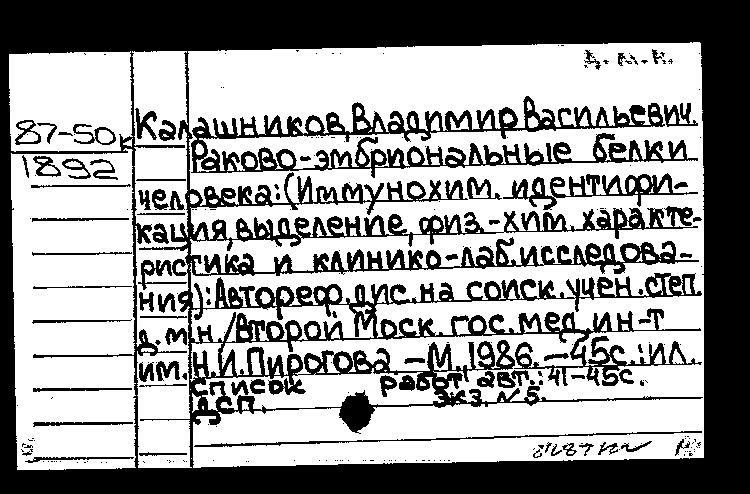 Д.М.Н.
87-50к
1892
Калашников, Владимир Васильевич.
Раково-эмбриональные белки
человека: (Иммунохим. идентифи-
кация, выделение, физ.-хим. характе-
ристика и клинико-лаб. исследова-
ния): Автореф. дис. на соиск. учен. степ.
д.м.н. /Второй Моск. гос. мед. ин-т
им. Н.И.Пирогова. -М., 1986. -45с.: ил.
Список работ авт.: 41-45с.
ДСП. Экз. №5.